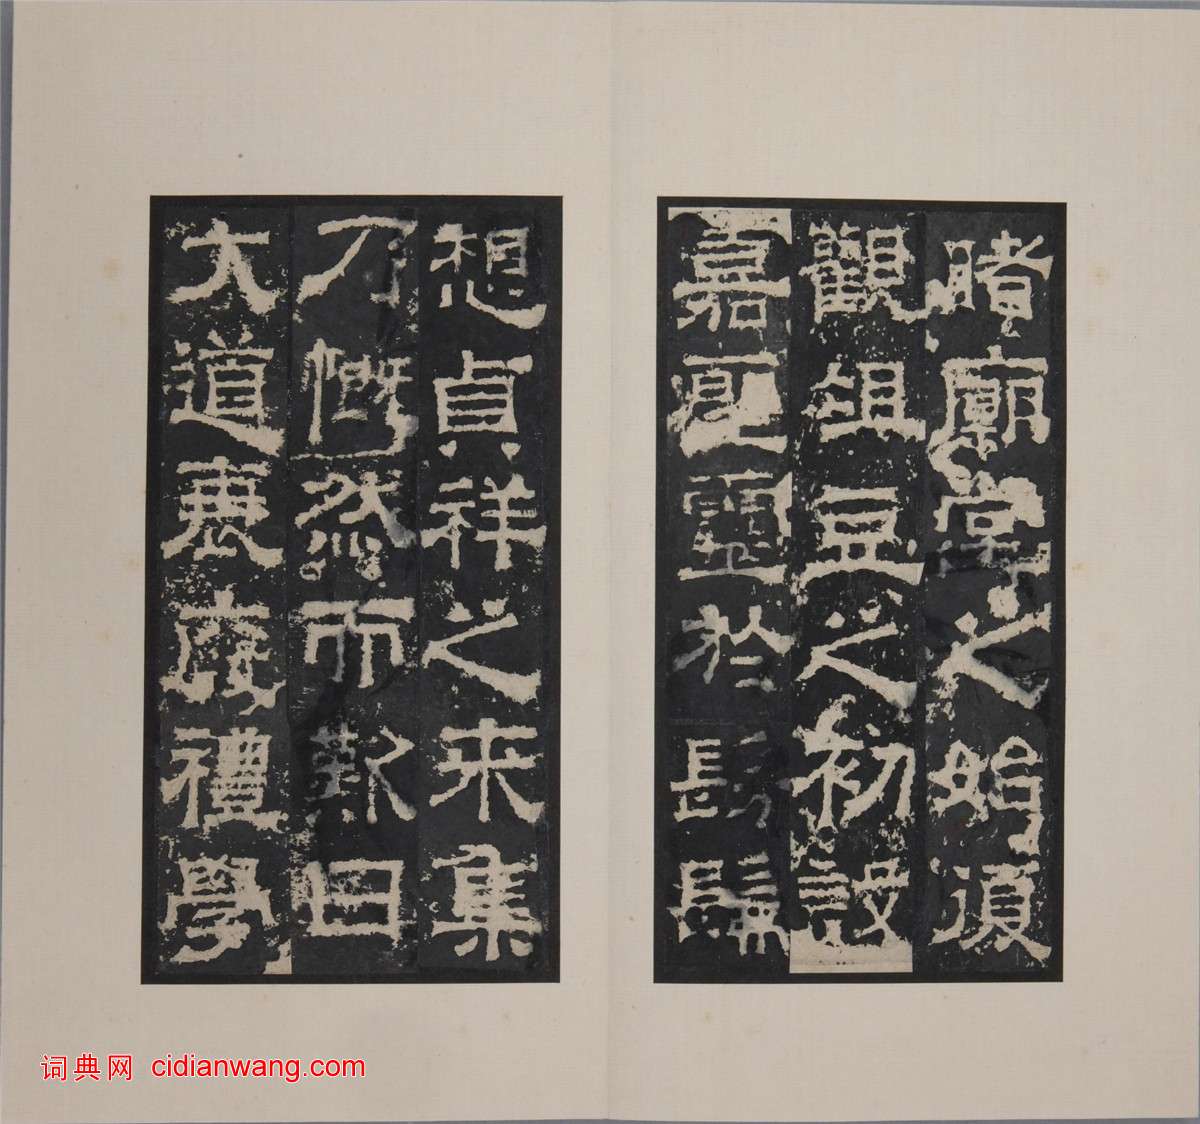 睹廟堂之始復
觀俎豆之初設
嘉聖靈於髣髴
想貞祥之來集
乃慨然而歎曰
大道衰廢禮學
词典网 cidianwang.com